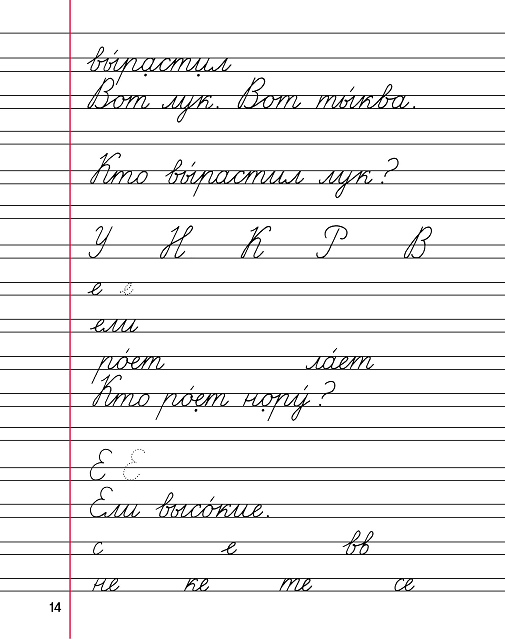 вы́растил
Вот лук. Вот ты́ква.
Кто вы́растил лук?
У Н К Р В
е е
ели
ро́ет ла́ет
Кто ро́ет нору́?
Е Е
Ели высо́кие.
с е вв
не ке те се
14